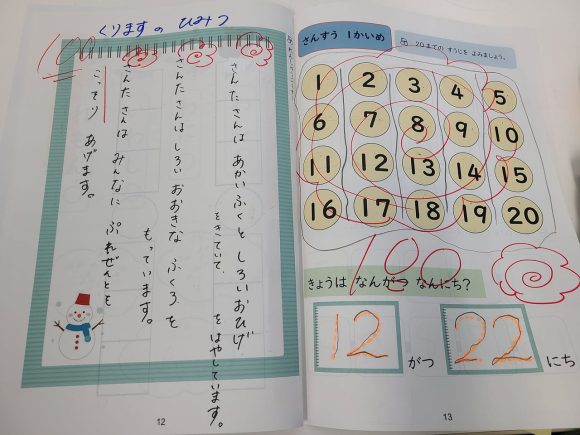 くりますの ひみつ
100
さんたさんは あかいふくと しろいおひげ
をきていて、
をはやしています。
さんたさんは しろい おおきな ふくろを
もっています。
さんたさんは みんなに ぷれぜんとを
こっそり あげます。
12
さんすう 1かいめ
20までの すうじを よみましょう。
1 2 3 4 5
6 7 8 9 10
11 12 13 14 15
16 17 18 19 20
100
きょうは なんがつ なんにち?
12 がつ 22 にち
13